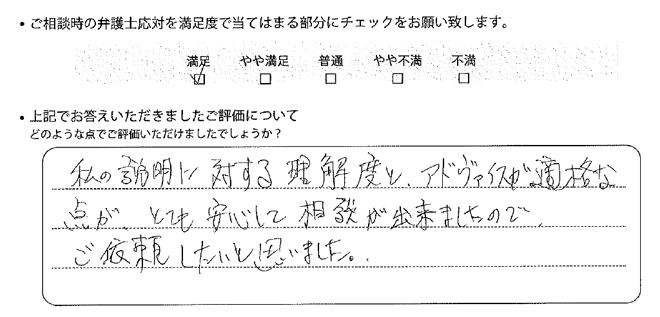 ・ご相談時の弁護士応対を満足度で当てはまる部分にチェックをお願い致します。
満足 やや満足 普通 やや不満 不満
☑ □ □ □ □
・上記でお答えいただきましたご評価について
どのような点でご評価いただけましたでしょうか？
私の説明に対する理解度と、アドヴァイスが適格な
点が、とても安心して相談が出来ましたので、
ご依頼したいと思いました。